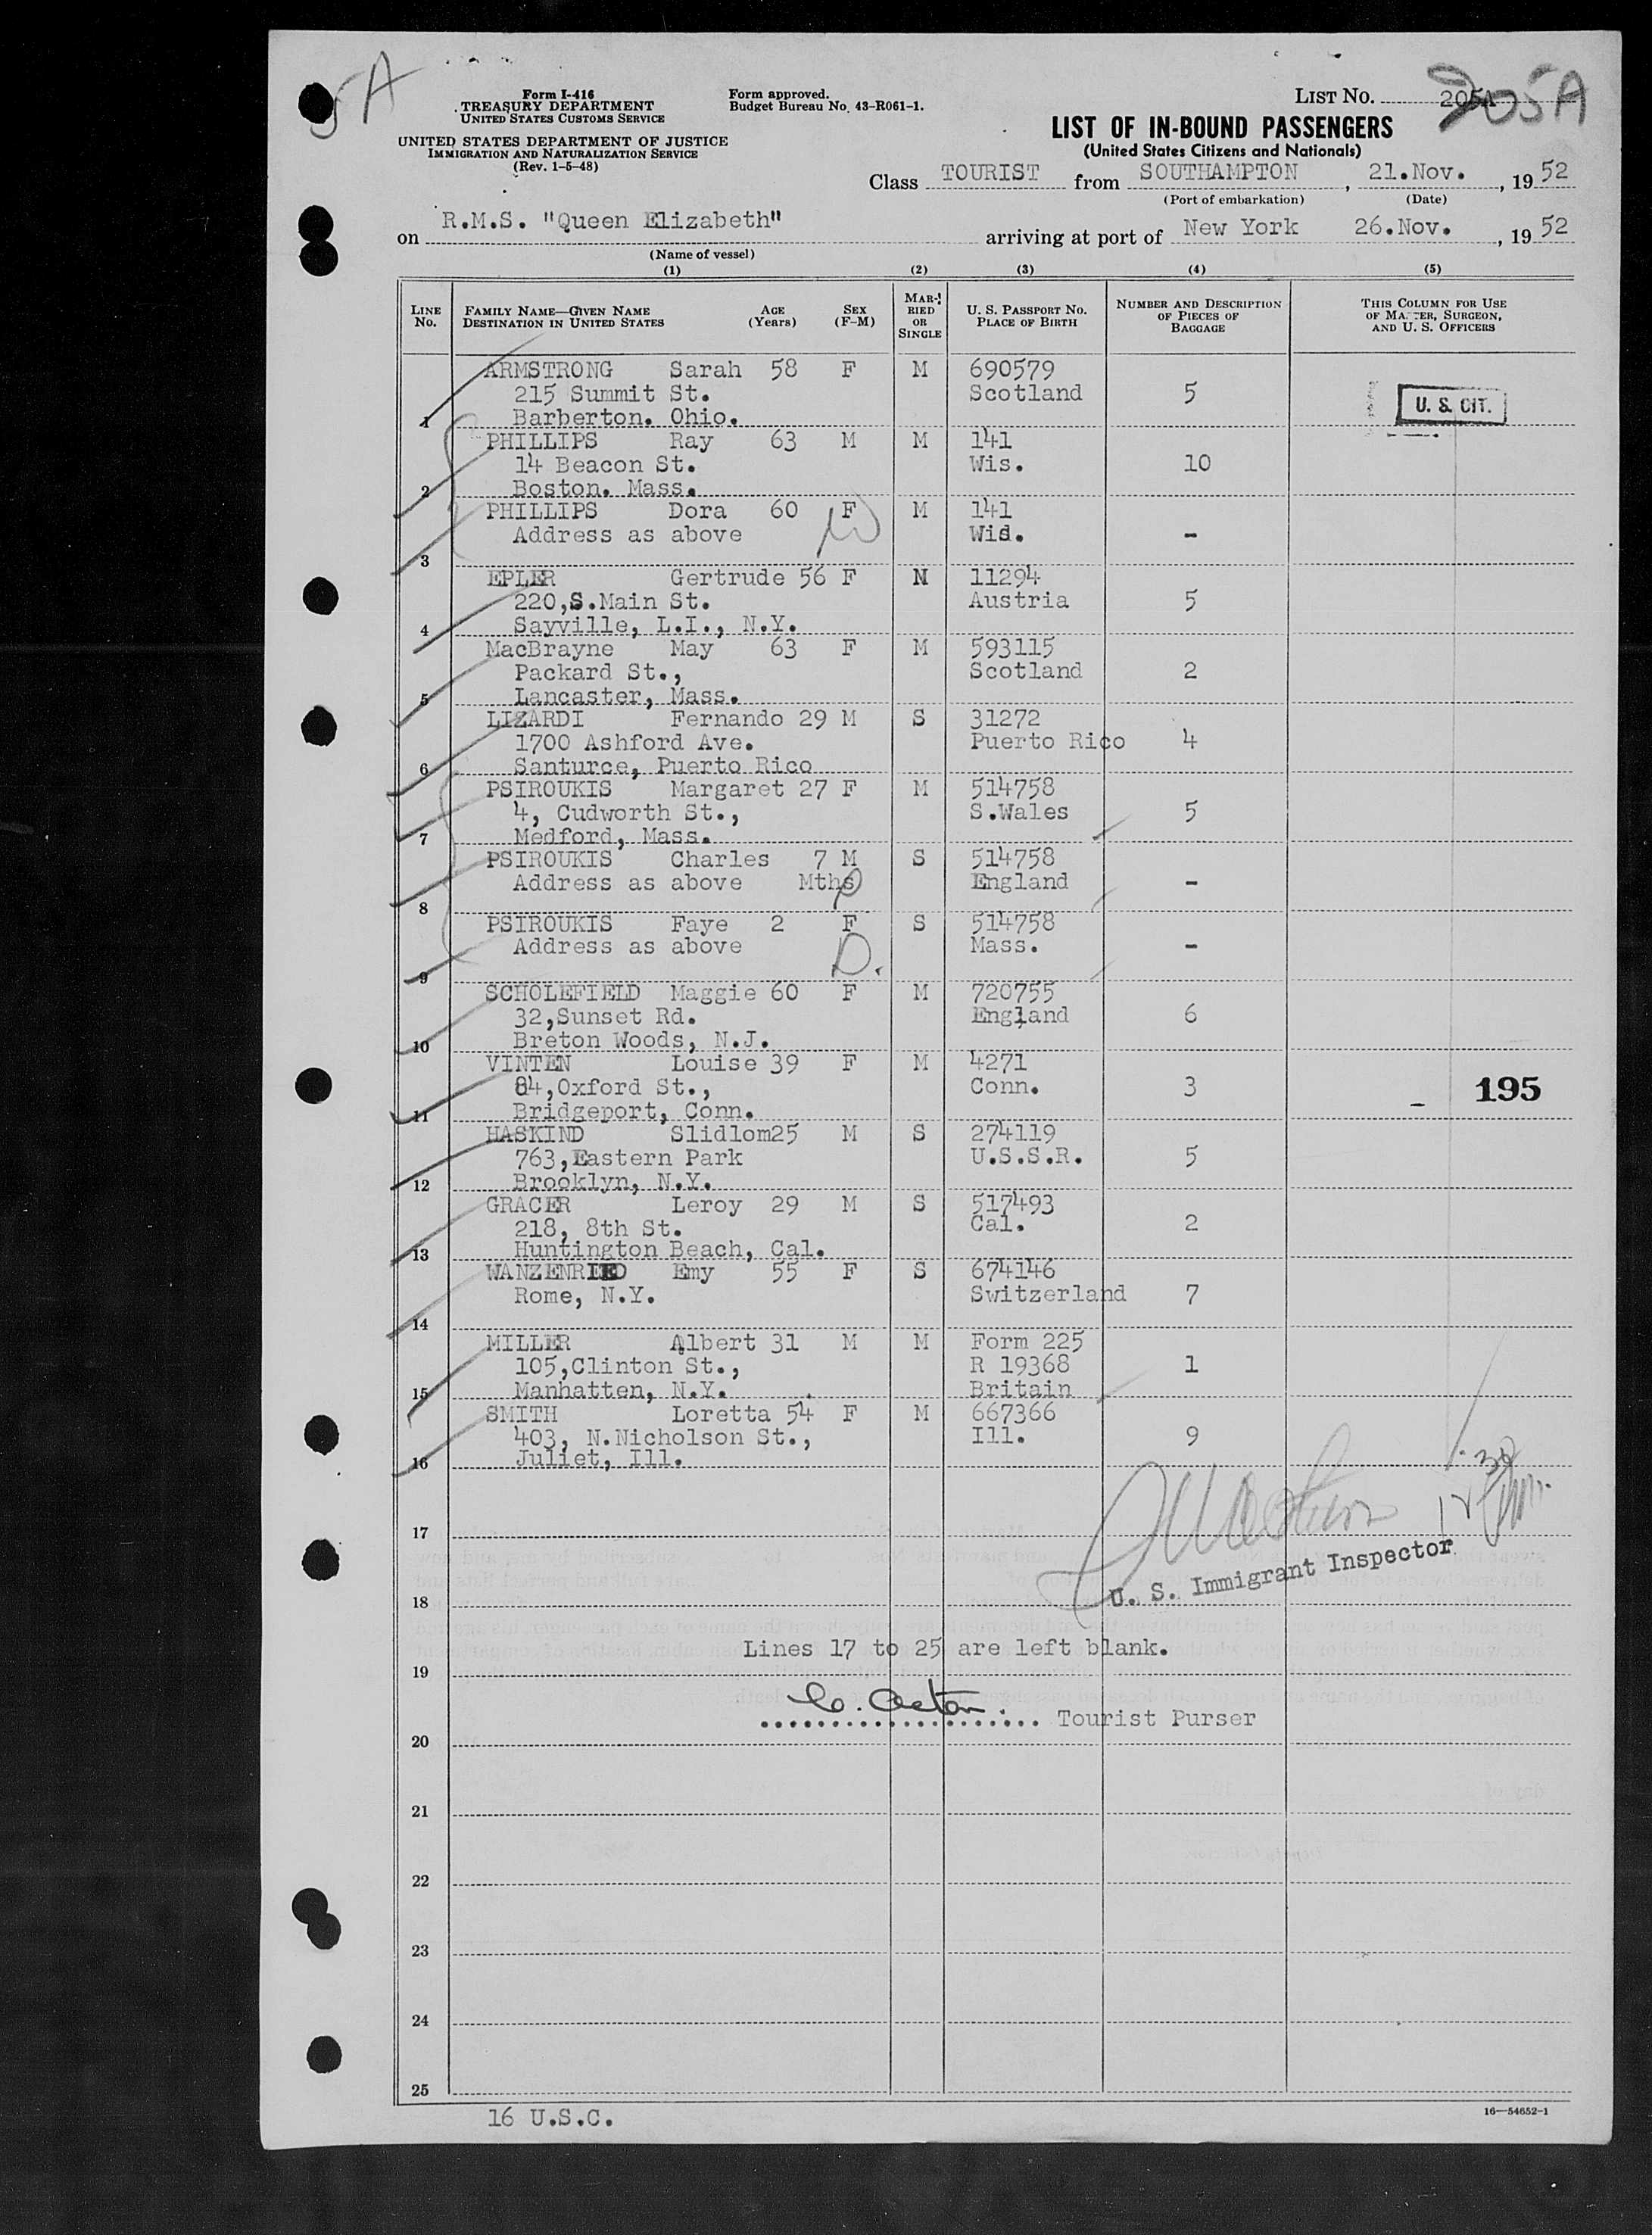 5A
Form I-416
TREASURY DEPARTMENT
UNITED STATES CUSTOMS SERVICE
UNITED STATES DEPARTMENT OF JUSTICE
IMMIGRATION AND NATURALIZATION SERVICE
(Rev. 1-5-48)
Form approved.
Budget Bureau No. 43-R061-1.
LIST NO. 205A 205A
LIST OF IN-BOUND PASSENGERS
(United States Citizens and Nationals)
Class TOURIST from SOUTHAMPTON, 21.Nov., 1952
(Port of embarkation) (Date)
on R.M.S. "Queen Elizabeth" arriving at port of New York 26.Nov., 1952
(Name of vessel)
(1) (2) (3) (4) (5)
LINE No. FAMILY NAME—GIVEN NAME DESTINATION IN UNITED STATES AGE (Years) SEX (F-M) MARRIED OR SINGLE U. S. PASSPORT NO. PLACE OF BIRTH NUMBER AND DESCRIPTION OF PIECES OF BAGGAGE THIS COLUMN FOR USE OF MASTER, SURGEON, AND U. S. OFFICERS
ARMSTRONG Sarah 58 F M 690579
215 Summit St. Scotland 5 U. S. CIT.
1 Barberton. Ohio.
PHILLIPS Ray 63 M M 141
14 Beacon St. Wis. 10
2 Boston. Mass.
PHILLIPS Dora 60 F M 141
Address as above Wis. -
3
EPLER Gertrude 56 F M 11294
220,S.Main St. Austria 5
4 Sayville, L.I., N.Y.
MacBrayne May 63 F M 593115
Packard St., Scotland 2
5 Lancaster, Mass.
LIZARDI Fernando 29 M S 31272
1700 Ashford Ave. Puerto Rico 4
6 Santurce, Puerto Rico
PSIROUKIS Margaret 27 F M 514758
4, Cudworth St., S.Wales 5
7 Medford, Mass.
PSIROUKIS Charles 7 M S 514758
Address as above Mths England -
8
PSIROUKIS Faye 2 F S 514758
Address as above D. Mass. -
9
SCHOLEFIELD Maggie 60 F M 720755
32,Sunset Rd. England 6
10 Breton Woods, N.J.
VINTEN Louise 39 F M 4271
84,Oxford St., Conn. 3 - 195
11 Bridgeport, Conn.
HASKIND Slidlom25 M S 274119
763,Eastern Park U.S.S.R. 5
12 Brooklyn, N.Y.
GRACER Leroy 29 M S 517493
218, 8th St. Cal. 2
13 Huntington Beach, Cal.
WANZENRIED Emy 55 F S 674146
Rome, N.Y. Switzerland 7
14
MILLER Albert 31 M M Form 225
105,Clinton St., R 19368 1
15 Manhatten, N.Y. Britain
SMITH Loretta 54 F M 667366
403, N.Nicholson St., Ill. 9
16 Juliet, Ill.
17
U. S. Immigrant Inspector
18
Lines 17 to 25 are left blank.
19
C. Acton. Tourist Purser
20
21
22
23
24
25
16 U.S.C.
16—54652-1